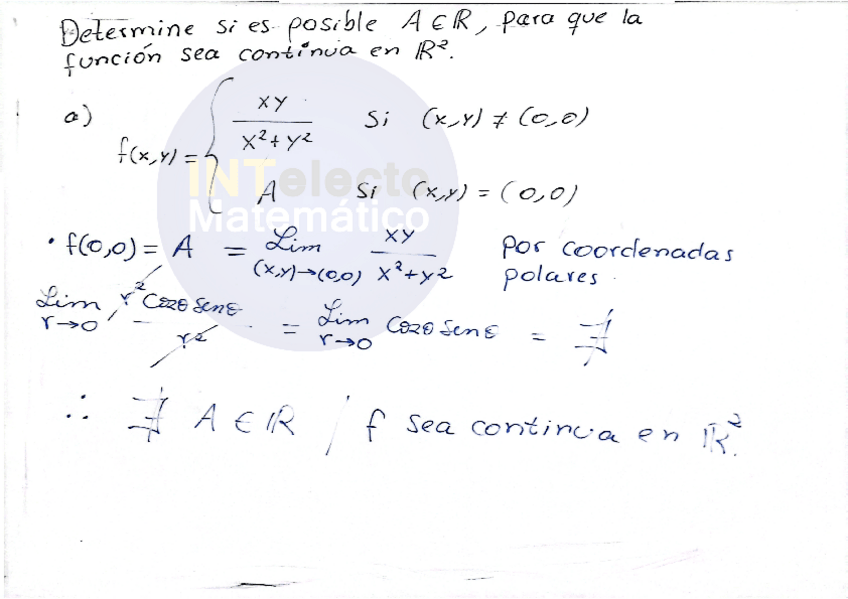 Determine si es posible A ∈ ℝ, para que la
función sea continua en ℝ².
a) f(x,y) = { xy / x²+y² si (x,y) ≠ (0,0)
A si (x,y) = (0,0)
INTelecto
Matemático
• f(0,0) = A = Lim (x,y)→(0,0) xy / x²+y² por coordenadas
polares.
Lim r→0 r² Cosθ Senθ / r² = Lim r→0 Cosθ Senθ = ∄
∴ ∄ A ∈ ℝ / f sea continua en ℝ².